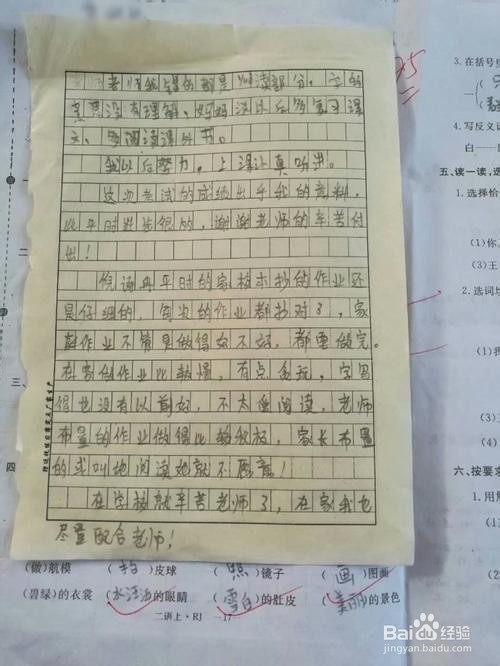 考试我错的都是阅读部分。字的
意思没有理解。妈妈说以后多复习课
文、多阅读课外书。
我以后努力，上课认真听讲。
这次考试的成绩出乎我的意料，
比平时进步很的，谢谢老师的辛苦付
出！
平时的家校本抄的作业还
是仔细的，每次的作业都抄对了，家
庭作业不管是做得好不好，都要做完。
在家做作业比较慢，有点贪玩，字写
得也没有以前好，不太爱阅读，老师
布置的作业做得比较积极，家长布置
的或叫她阅读她就不愿意！
在学校就辛苦老师了，在家我也
尽量配合老师！
3.在括号里
4.写反义词
白——
五、读一读，选
1.选择恰
(1)你
(3)王
2.选词填
(1)我
六、按要求
1.用
(做)航模 皮球 (照)镜子 (画)图画
(碧绿)的衣裳 (水汪汪)的眼睛 (雪白)的肚皮 (美丽)的景色
二语上·RJ —17
三
四
95
Bai 百度经验
jingyan.baidu.com